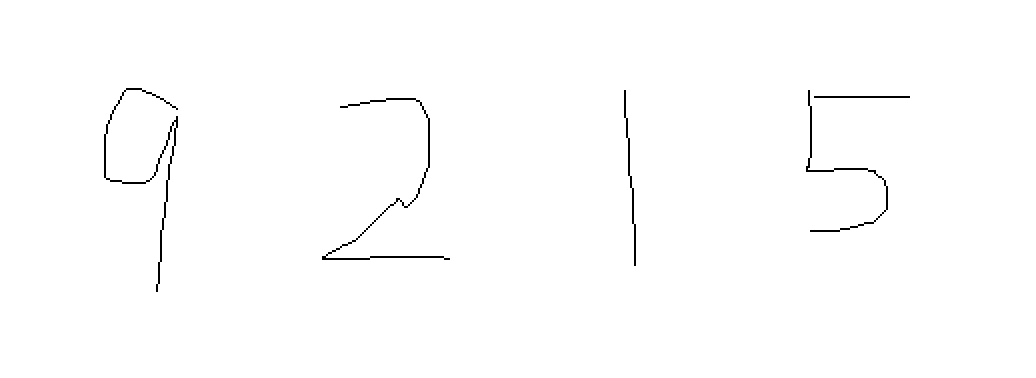 9 2 1 5